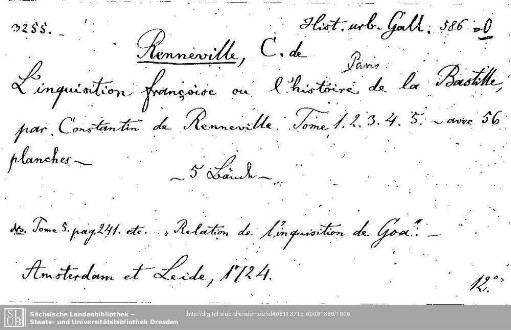 3255. Hist. urb. Gall. 586 = 0
Renneville, C. de
Paris
L'inquisition françoise ou l'histoire de la Bastille,
par Constantin de Renneville. Tome 1. 2. 3. 4. 5. – avec 56
planches –
– 5 Bände –
NB. Tome 5. pag. 241. etc. „Relation de l'inquisition de Goa". –
Amsterdam et Leide, 1724.
12°
Sächsische Landesbibliothek –
Staats- und Universitätsbibliothek Dresden